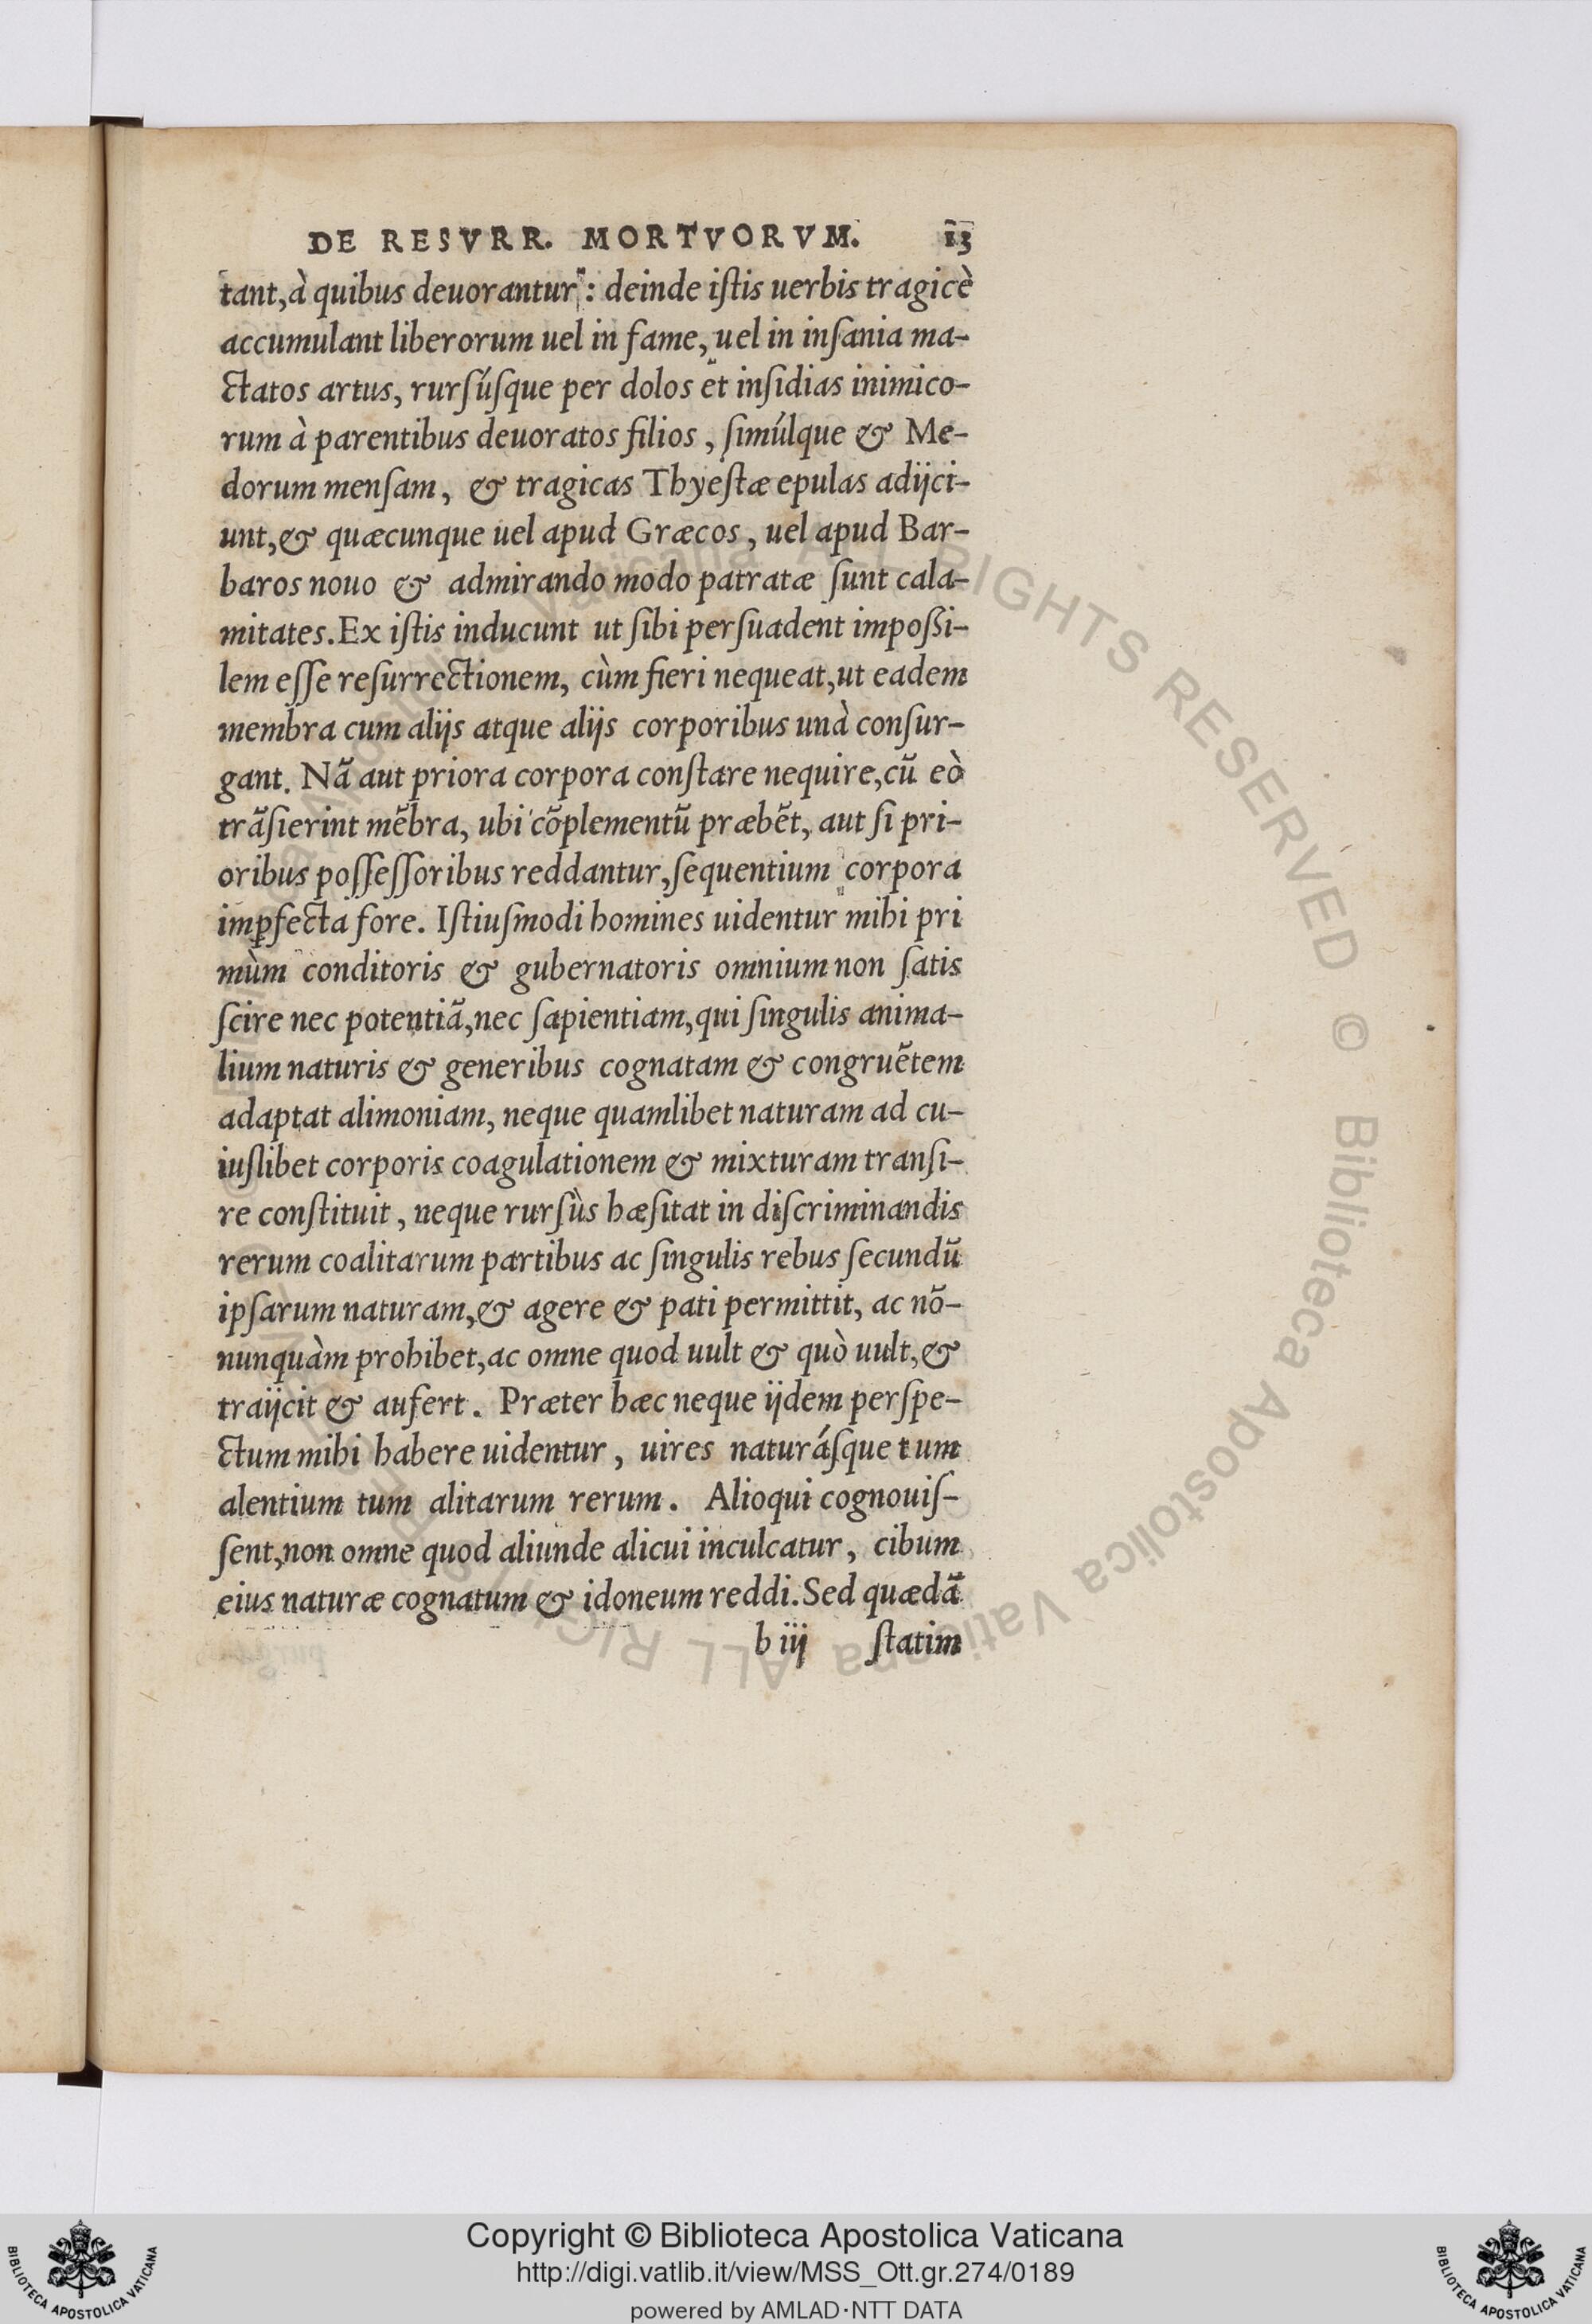 DE RESVRR. MORTVORVM. 13
tant,à quibus deuorantur: deinde iſtis uerbis tragicè
accumulant liberorum uel in fame, uel in inſania ma-
ctatos artus, rurſúſque per dolos et inſidias inimico-
rum à parentibus deuoratos filios, ſimúlque & Me-
dorum menſam, & tragicas Thyeſtæ epulas adijci-
unt,& quæcunque uel apud Græcos, uel apud Bar-
baros nouo & admirando modo patratæ ſunt cala-
mitates. Ex iſtis inducunt ut ſibi perſuadent impoßi-
lem eſſe reſurrectionem, cùm fieri nequeat,ut eadem
membra cum alijs atque alijs corporibus unà conſur-
gant. Nã aut priora corpora conſtare nequire,cũ eò
trãſierint mẽbra, ubi cõplementũ præbẽt, aut ſi pri-
oribus poſſeſſoribus reddantur,ſequentium corpora
imꝑfecta fore. Iſtiuſmodi homines uidentur mihi pri
mùm conditoris & gubernatoris omnium non ſatis
ſcire nec potentiã,nec ſapientiam,qui ſingulis anima-
lium naturis & generibus cognatam & congruẽtem
adaptat alimoniam, neque quamlibet naturam ad cu-
iuſlibet corporis coagulationem & mixturam tranſi-
re conſtituit, neque rurſùs hæſitat in diſcriminandis
rerum coalitarum partibus ac ſingulis rebus ſecundũ
ipſarum naturam,& agere & pati permittit, ac nõ-
nunquàm prohibet,ac omne quod uult & quò uult,&
traijcit & aufert. Præter hæc neque ijdem perſpe-
ctum mihi habere uidentur, uires naturáſque tum
alentium tum alitarum rerum. Alioqui cognouiſ-
ſent,non omne quod aliunde alicui inculcatur, cibum
eius naturæ cognatum & idoneum reddi. Sed quædã
b iij ſtatim
© Biblioteca Apostolica Vaticana ALL RIGHTS RESERVED © Biblioteca Apostolica Vaticana ALL RIGHTS RESERVED
Copyright © Biblioteca Apostolica Vaticana
http://digi.vatlib.it/view/MSS_Ott.gr.274/0189
powered by AMLAD·NTT DATA
BIBLIOTECA APOSTOLICA VATICANA
BIBLIOTECA APOSTOLICA VATICANA